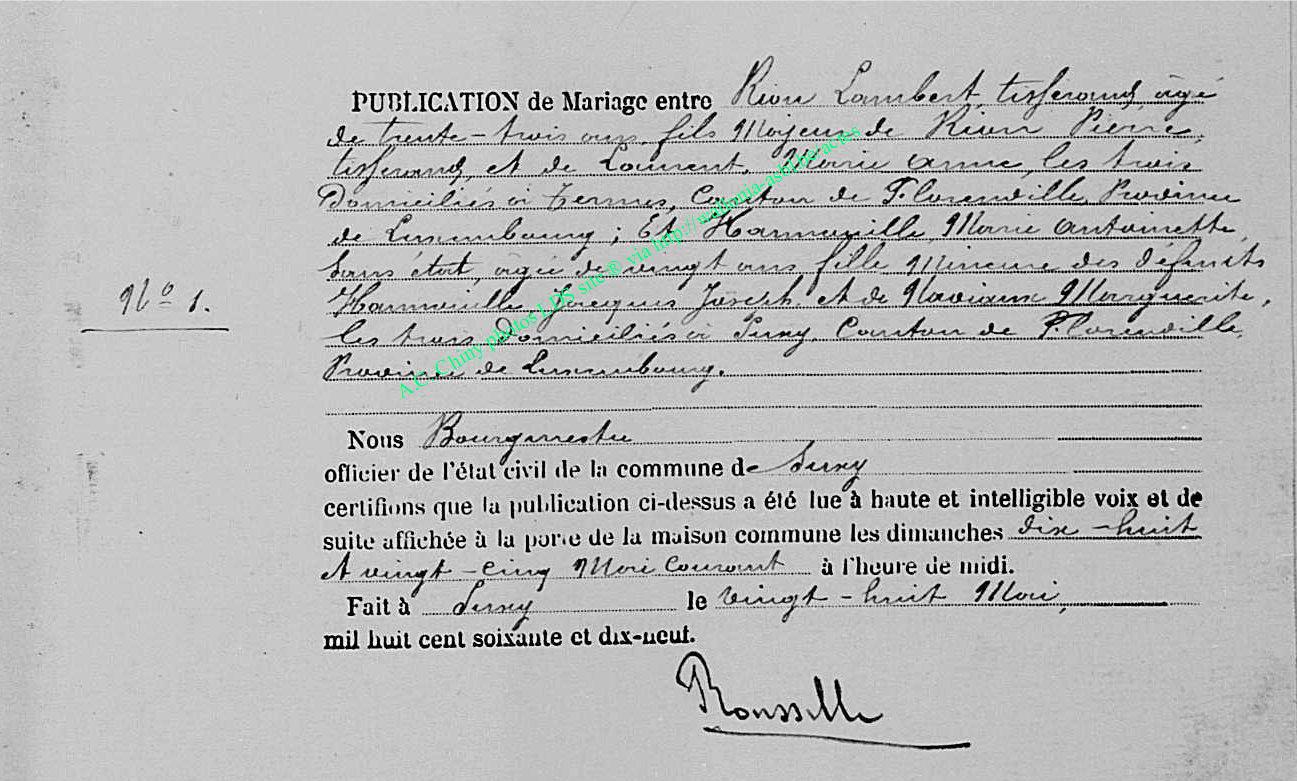 PUBLICATION de Mariage entre Rion Lambert, tisserand, âgé
de trente-trois ans, fils Majeur de Rion Pierre,
tisserand, et de Laurent, Marie anne, les trois
Domiciliés à Termes, Canton de Florenville, Province
de Luxembourg ; Et Hannouille, Marie Antoinette,
Sans état, agée de vingt ans, fille Mineure des défunts
Hannouille Jacques Joseph, et de Naviaux Marguerite,
N° 1.
les trois Domiciliés à Suxy, Canton de Florenville,
Province de Luxembourg.
Nous Bourgmestre
officier de l'état civil de la commune de Suxy
certifions que la publication ci-dessus a été lue à haute et intelligible voix et de
suite affichée à la porte de la maison commune les dimanches dix-huit
et vingt-cinq Mai courant à l'heure de midi.
Fait à Suxy le vingt-huit Mai,
mil huit cent soixante et dix-neuf.
Rousselle
A.C. Chiny photos LDS site © via http://wallonia-asbl.be/actes